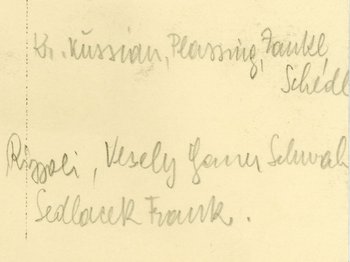 Kr. Kussian, Plassnig, Zankl,
Schedl
Rizzoli, Vesely Schwab
Sedlacek Frank.